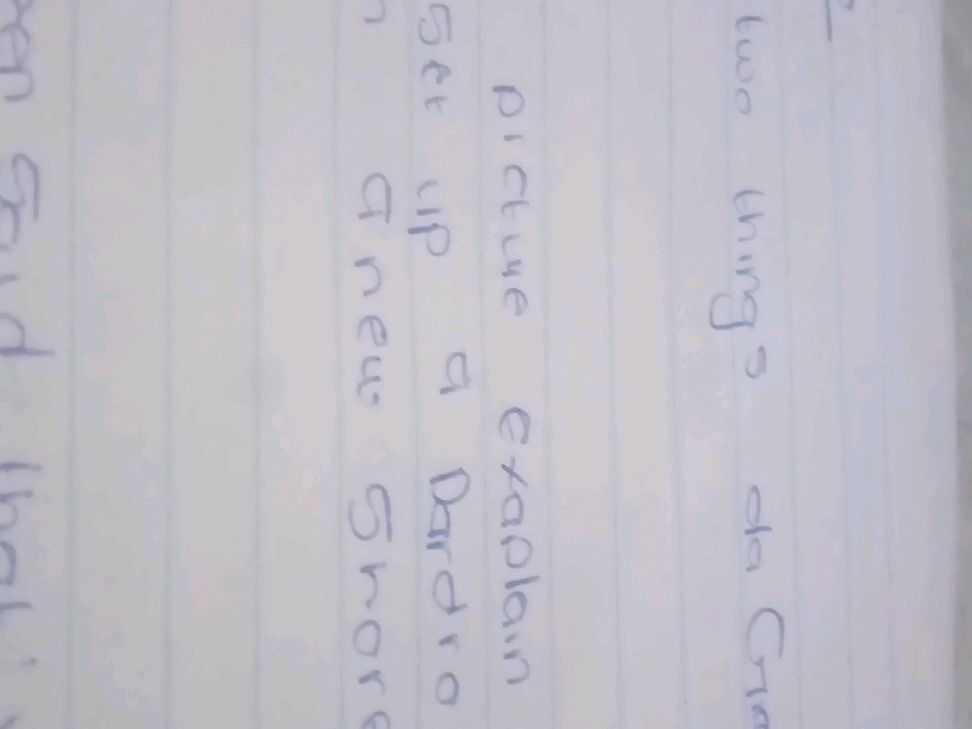 two things da Gra
picture exaplain
Set up a Pardro
n a new Shore
en Said that